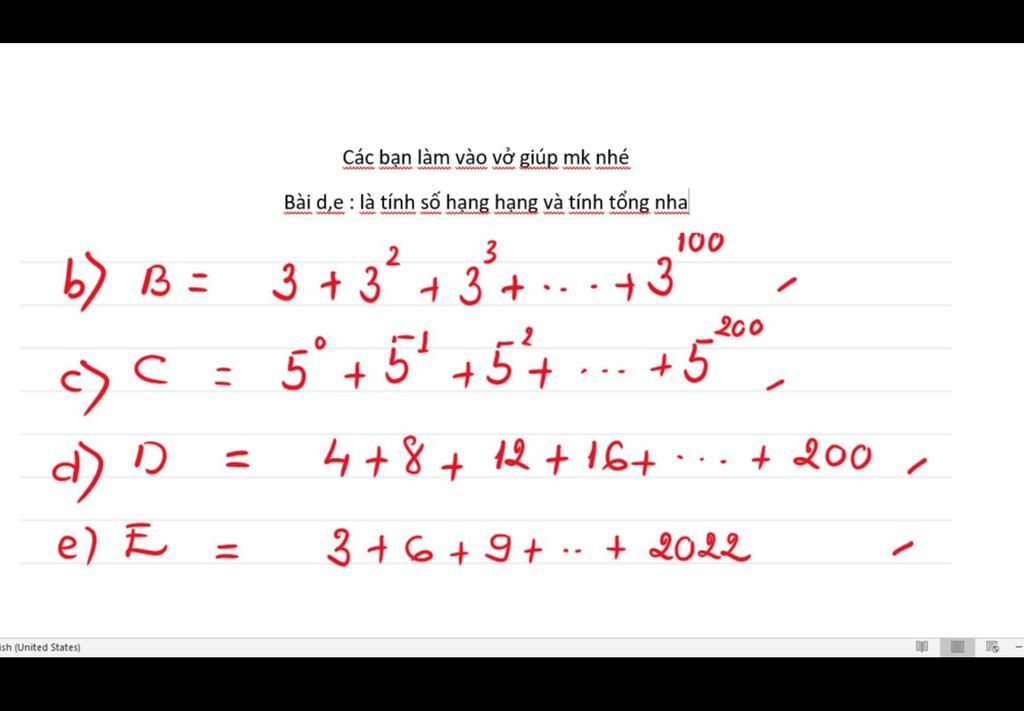 Các bạn làm vào vở giúp mk nhé
Bài d,e : là tính số hạng hạng và tính tổng nha
b) B = 3 + 3² + 3³ + ... + 3¹⁰⁰
c) C = 5⁰ + 5¹ + 5² + ... + 5²⁰⁰
d) D = 4 + 8 + 12 + 16 + ... + 200
e) E = 3 + 6 + 9 + .. + 2022
ish (United States)